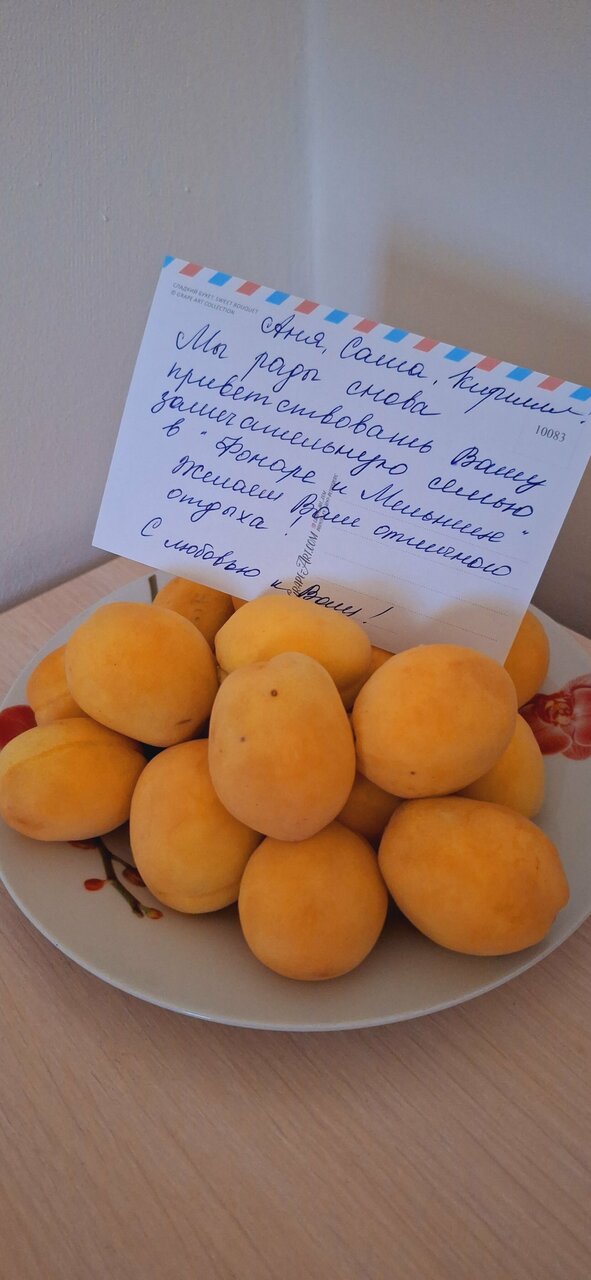 СЛАДКИЙ БУКЕТ. SWEET BOUQUET
© GRAPE ART COLLECTION
Аня, Саша, Кирилл!
Мы рады снова
приветствовать Вашу
замечательную семью
в "Фонаре и Мельнице"
Желаем Вам отличного
отдыха!
С любовью к Вам!
10083